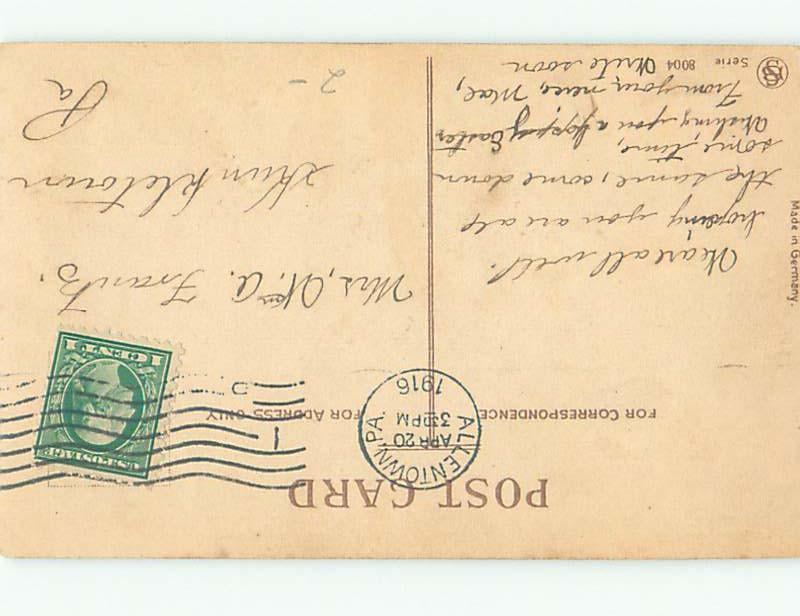 POST CARD
FOR CORRESPONDENCE
FOR ADDRESS ONLY
ALLENTOWN, PA.
APR 20
330 PM
1916
1
D
U.S. POSTAGE
1 CENT 1
We are all well.
hoping you are all
the same, come down
some, time,
Wishing you a happy Easter
From your, niece, Mae,
Write soon
Mrs, Wm A. Frantz,
Kunkletown
Pa
2-
Made in Germany.
Serie 8004